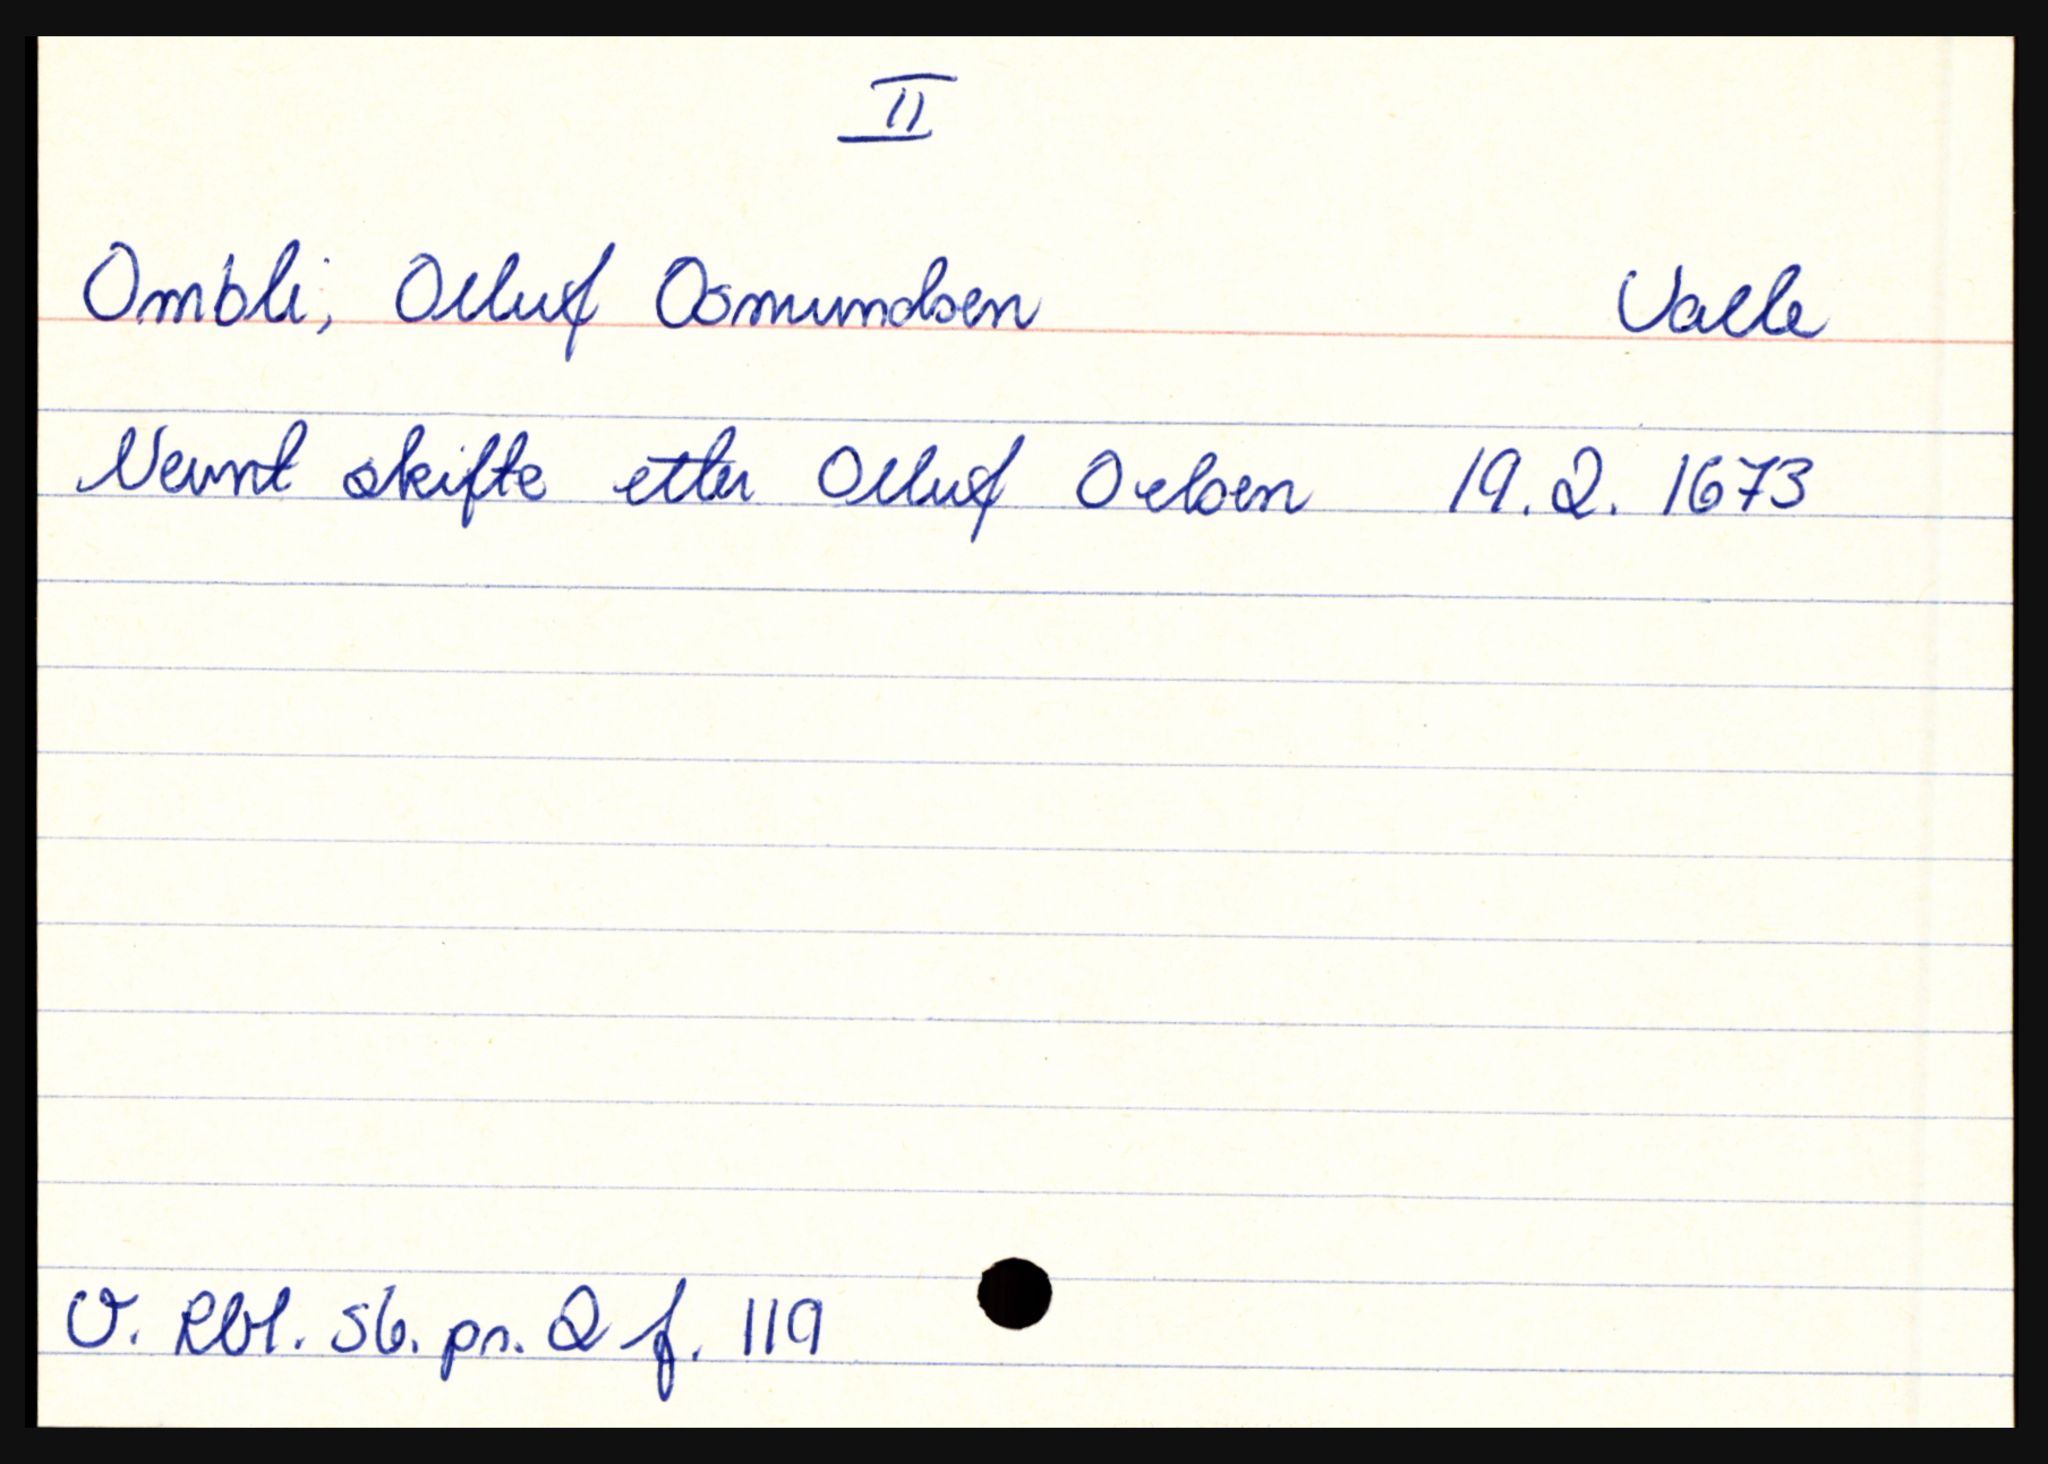 II
Ombli, Olluf Osmundsen Valle
Nevnt skifte etter Olluf Oelsen 19.2.1673
V. Rbl. sb. pr. 2 f. 119